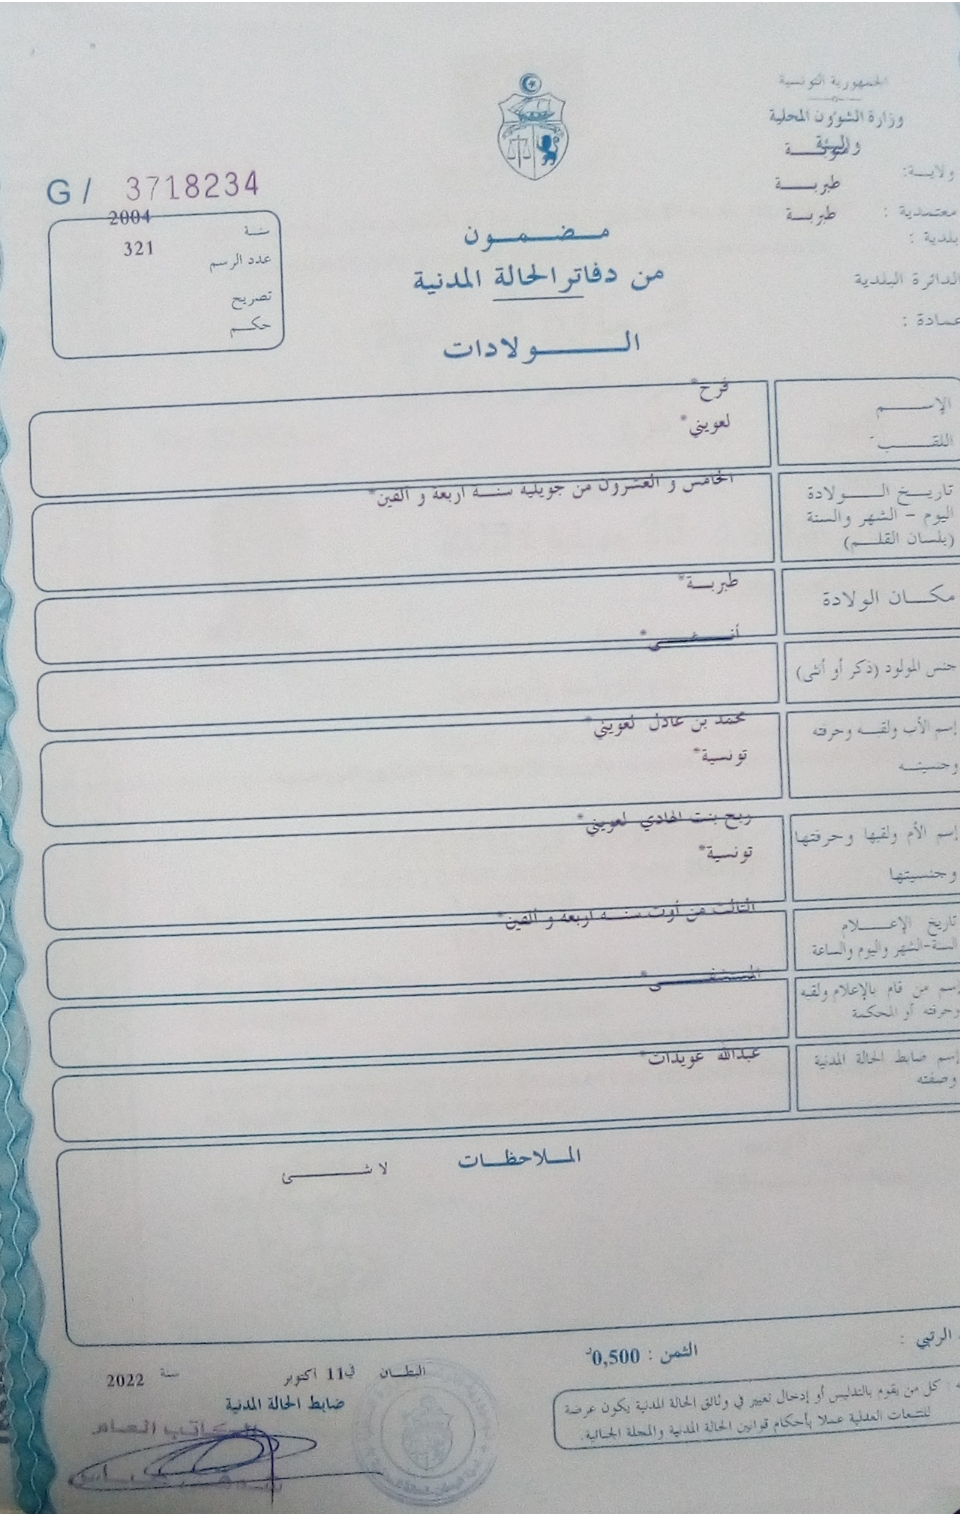 الجمهورية التونسية
وزارة الشؤون المحلية
والبيئة
منوبة
ولاية:
طبربة
معتمدية :
طبربة
بلدية :
الدائرة البلدية
عمادة :
G / 3718234
سنة 2004
عدد الرسم 321
تصريح
حكم
مضمون
من دفاتر الحالة المدنية
الولادات
الإسم فرح*
اللقب لعويني*
تاريخ الولادة الخامس و العشرون من جويلية سنة اربعة و الفين*
اليوم - الشهر والسنة
(بلسان القلم)
مكان الولادة طبربة*
جنس المولود (ذكر أو أنثى) أنثى*
إسم الأب ولقبه وحرفته محمد بن عادل لعويني*
وجنسيته تونسية*
إسم الأم ولقبها وحرفتها ربح بنت الهادي لعويني*
وجنسيتها تونسية*
تاريخ الإعلام الثالث من أوت سنة اربعة و الفين*
السنة-الشهر واليوم والساعة
إسم من قام بالإعلام ولقبه المستشفى*
وحرفته أو المحكمة
إسم ضابط الحالة المدنية عبدالله عويدات*
وصفته
الملاحظات
لا شئ
الرتبي :
الثمن : 0,500د
كل من يقوم بالتدليس أو إدخال تغيير في وثائق الحالة المدنية يكون عرضة
للتتبعات العدلية عملا بأحكام قوانين الحالة المدنية والمجلة الجنائية.
البطان في 11 اكتوبر سنة 2022
ضابط الحالة المدنية
الكاتب العام